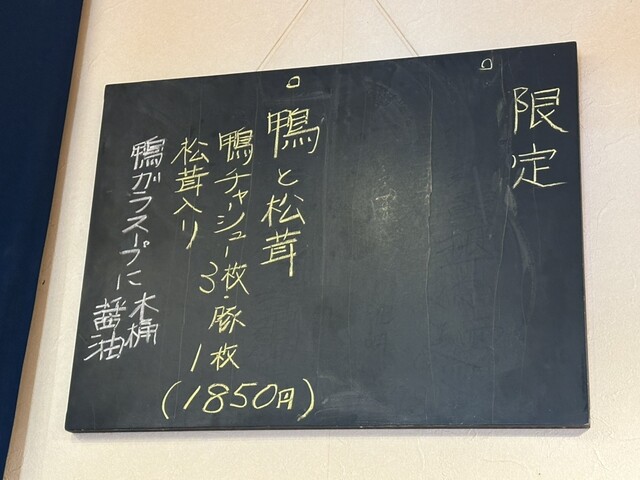 限定
鴨と松茸
鴨チャーシュー3枚・豚1枚
松茸入り
(1850円)
鴨ガラスープに木桶醤油